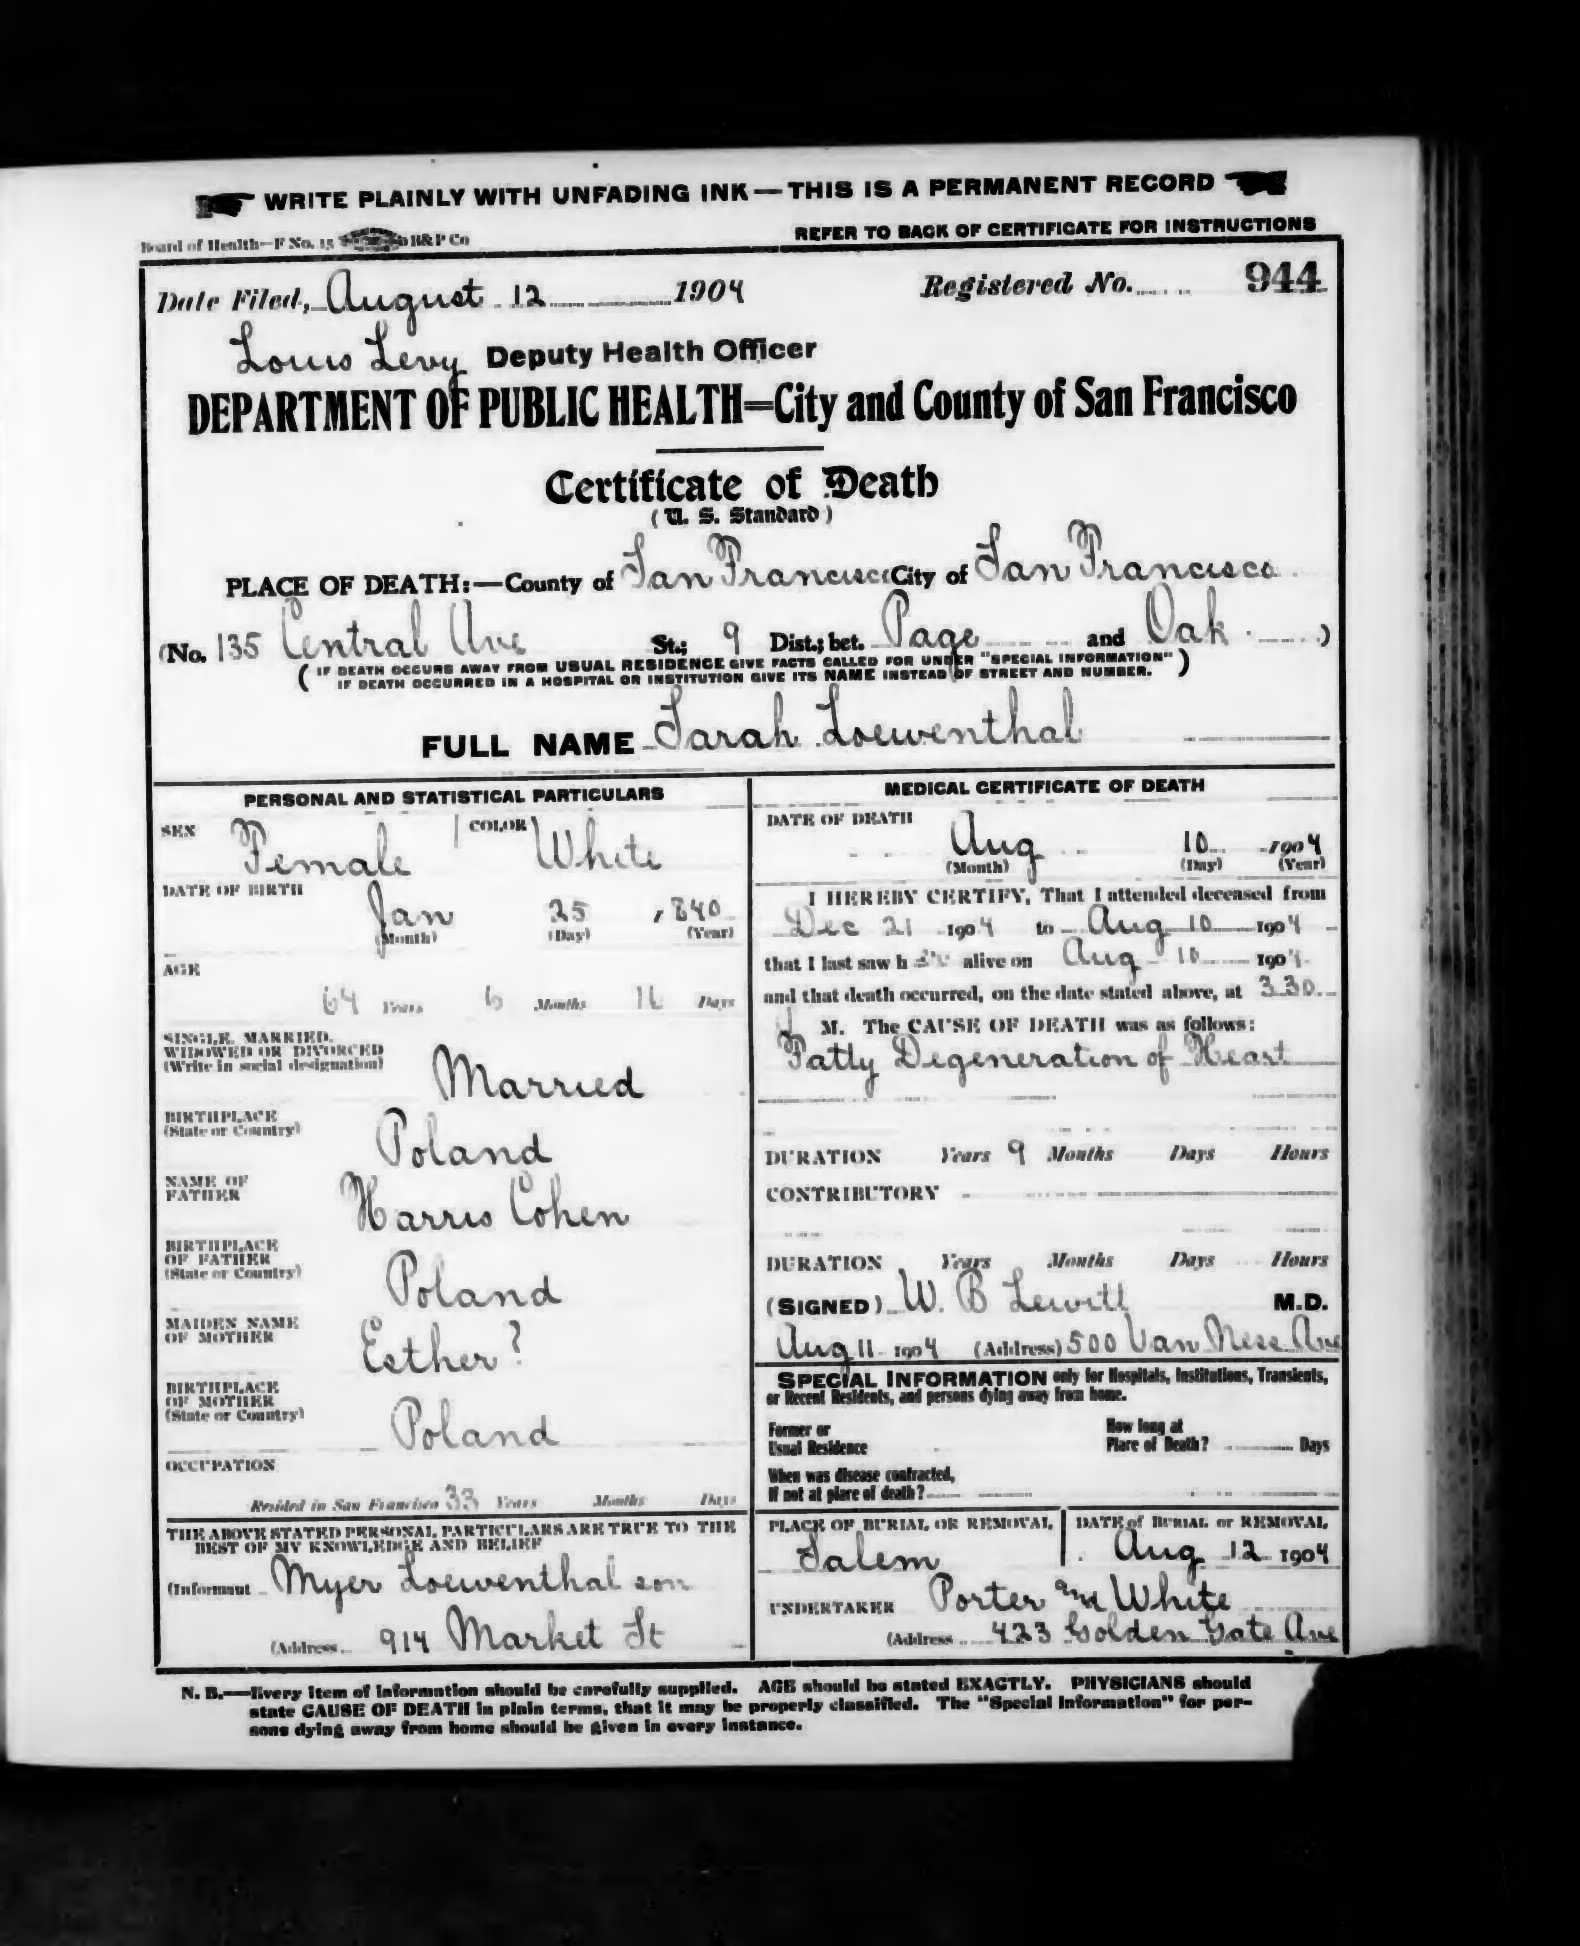 WRITE PLAINLY WITH UNFADING INK—THIS IS A PERMANENT RECORD
Board of Health—F No. 15 H&P Co
REFER TO BACK OF CERTIFICATE FOR INSTRUCTIONS
Date Filed, August 12 1904 Registered No. 944
Louis Levy Deputy Health Officer
DEPARTMENT OF PUBLIC HEALTH=City and County of San Francisco
Certificate of Death
(U. S. Standard)
PLACE OF DEATH:—County of San Francisco City of San Francisco
(No. 135 Central Ave St.; 9 Dist.; bet. Page and Oak )
( IF DEATH OCCURS AWAY FROM USUAL RESIDENCE GIVE FACTS CALLED FOR UNDER "SPECIAL INFORMATION" )
IF DEATH OCCURRED IN A HOSPITAL OR INSTITUTION GIVE ITS NAME INSTEAD OF STREET AND NUMBER.
FULL NAME Sarah Loewenthal
PERSONAL AND STATISTICAL PARTICULARS
SEX Female COLOR White
DATE OF BIRTH
Jan 25 1840
(Month) (Day) (Year)
AGE
64 Years 6 Months 16 Days
SINGLE, MARRIED,
WIDOWED OR DIVORCED
(Write in social designation)
Married
BIRTHPLACE
(State or Country)
Poland
NAME OF
FATHER
Harris Cohen
BIRTHPLACE
OF FATHER
(State or Country)
Poland
MAIDEN NAME
OF MOTHER
Esther?
BIRTHPLACE
OF MOTHER
(State or Country)
Poland
OCCUPATION
Resided in San Francisco 33 Years Months Days
THE ABOVE STATED PERSONAL PARTICULARS ARE TRUE TO THE
BEST OF MY KNOWLEDGE AND BELIEF
(Informant Myer Loewenthal son
(Address 914 Market St
MEDICAL CERTIFICATE OF DEATH
DATE OF DEATH
Aug 10 1904
(Month) (Day) (Year)
I HEREBY CERTIFY, That I attended deceased from
Dec 21 1904 to Aug 10 1904
that I last saw her alive on Aug 10 1904
and that death occurred, on the date stated above, at 3.30
M. The CAUSE OF DEATH was as follows:
Fatty Degeneration of Heart
DURATION Years 9 Months Days Hours
CONTRIBUTORY
DURATION Years Months Days Hours
(SIGNED) W. B Lewitt M.D.
Aug 11 1904 (Address) 500 Van Ness Ave
SPECIAL INFORMATION only for Hospitals, Institutions, Transients,
or Recent Residents, and persons dying away from home.
Former or
Usual Residence
How long at
Place of Death? Days
When was disease contracted,
If not at place of death?
PLACE OF BURIAL OR REMOVAL
Salem
DATE of BURIAL or REMOVAL
Aug 12 1904
UNDERTAKER Porter and White
(Address 423 Golden Gate Ave
N. B.—Every item of information should be carefully supplied. AGE should be stated EXACTLY. PHYSICIANS should
state CAUSE OF DEATH in plain terms, that it may be properly classified. The "Special Information" for per-
sons dying away from home should be given in every instance.